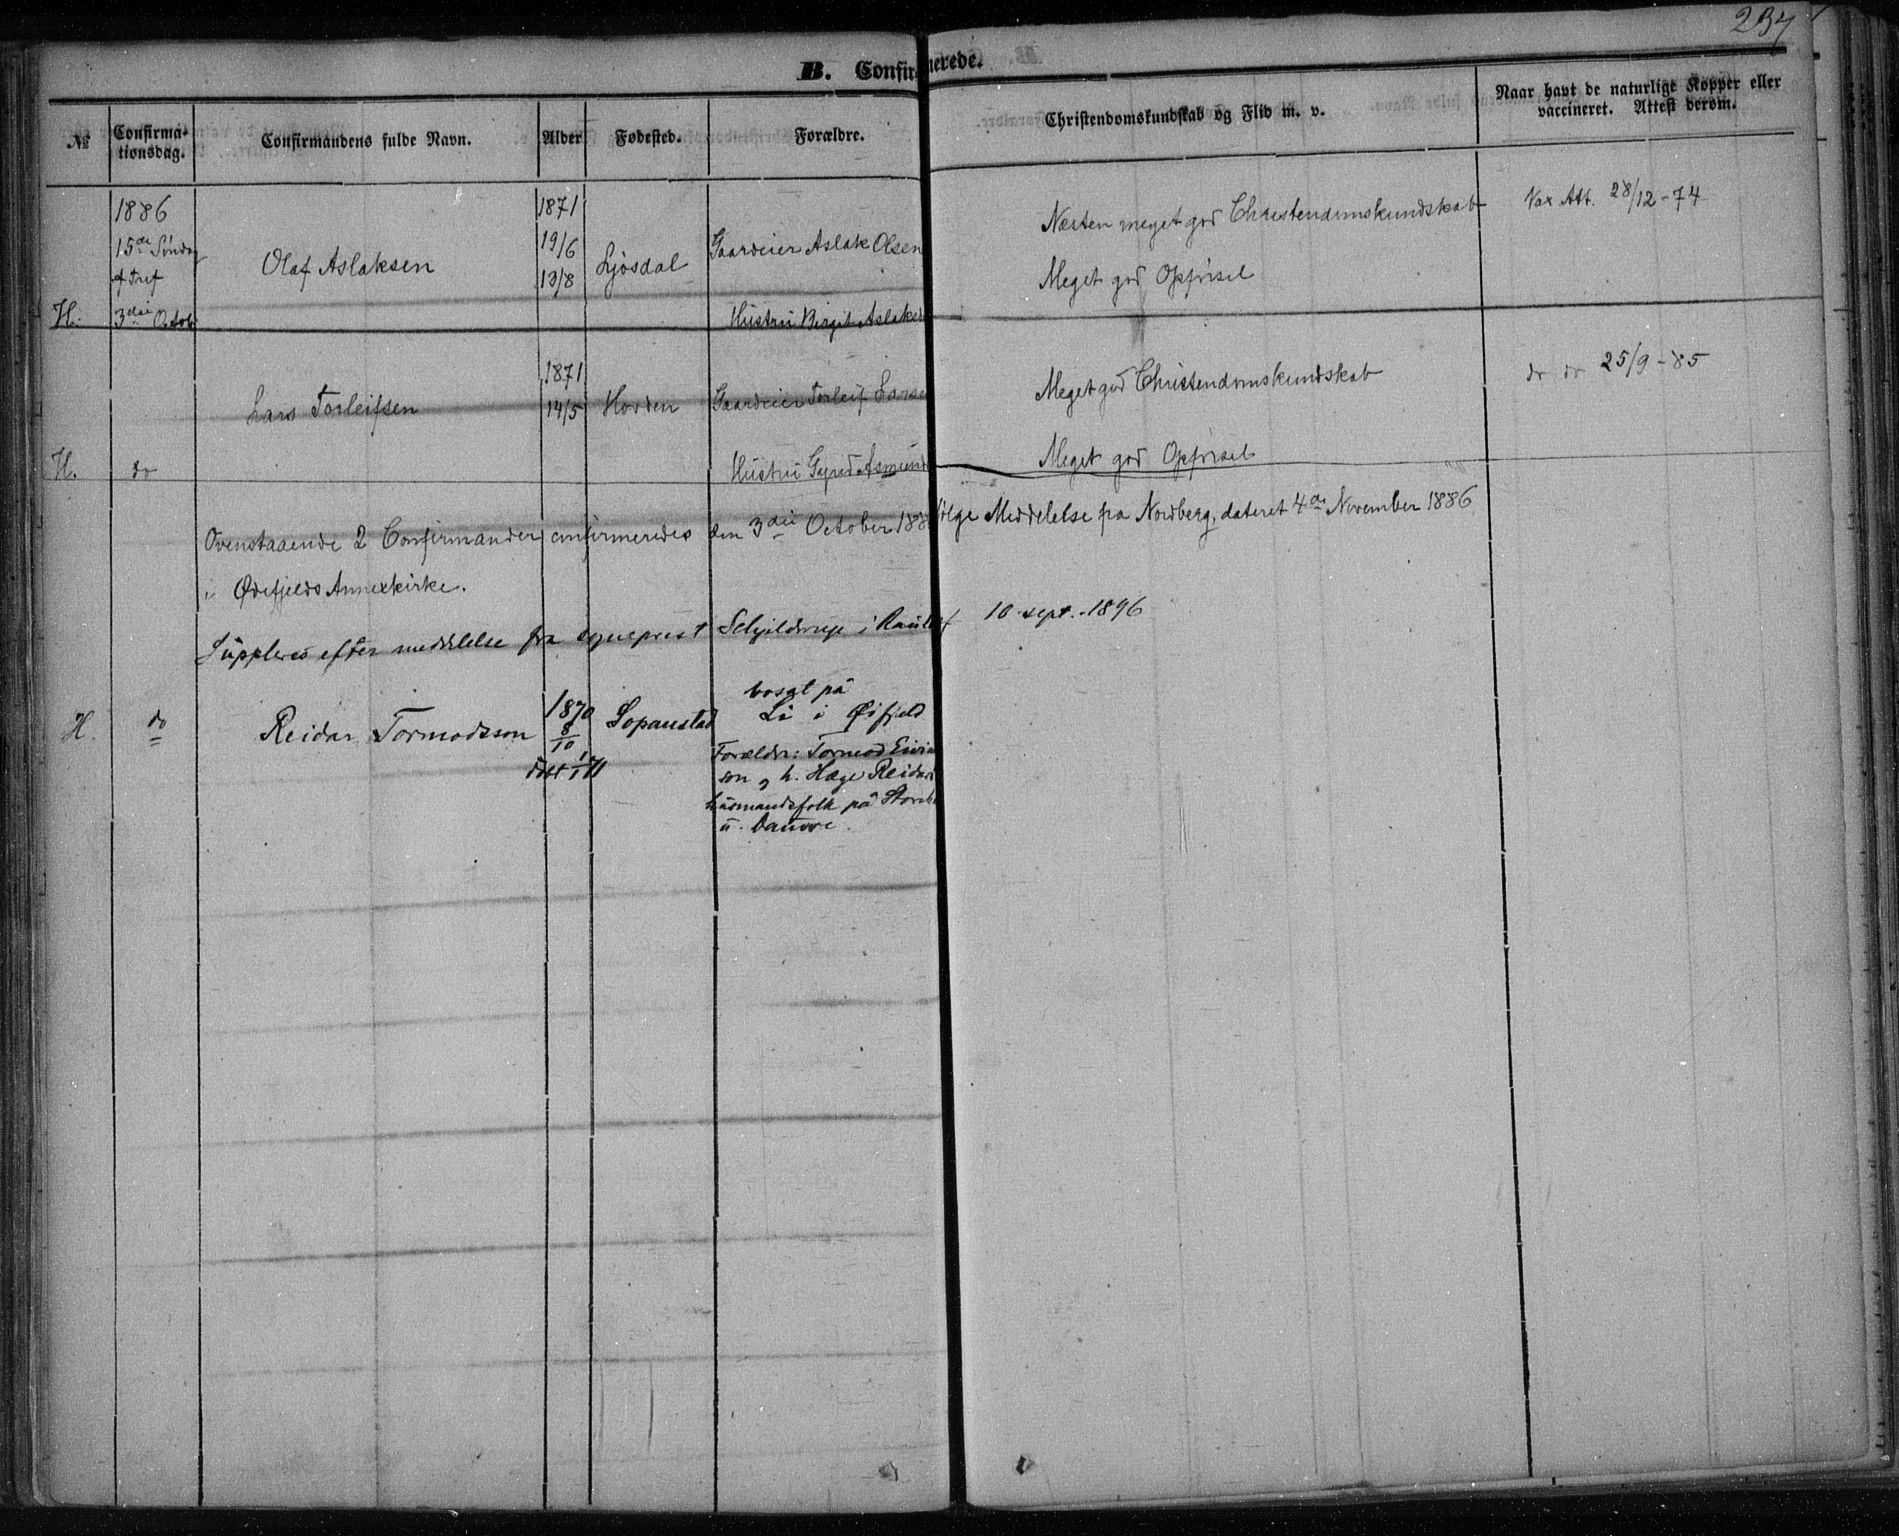 237
B. Confirmerede.
№
Confirma-
tionsdag.
Confirmandens fulde Navn.
Alder
Fødested.
Forældre.
Christendomskundskab og Flid m. v.
Naar havt de naturlige Kopper eller
vaccineret. Attest derom.
1886
15de Søndag
f Tref
H. 3die Octob
Olaf Aslaksen
1871
19/6
13/8
Ljosdal
Gaardeier Aslak Olsen
Hustru Birgit Aslaks
Næsten meget god Christendomskundskab
Meget god Opførsel
Vax Att. 28/12-74
H. do
Lars Torleifsen
1871
14/5
Hovden
Gaardeier Torleif Larse
Hustru Gyrid Asmund
Meget god Christendomskundskab
Meget god Opførsel
do do 25/9-85
Ovenstaaende 2 Confirmander confirmeredes den 3die October 188 følge Meddelelse fra Nordberg, dateret 4de November 1886
i Øifjelds Annexkirke.
Suppleres efter meddelelse fra sogneprest Schjelderup i Rauland 10 sept. 1896
H. do
Reidar Tormodsson
1870
8/10
døbt 1/1 71
Lopanstad
bosat på
Li i Øifjeld
Forældre: Tormod Eivin
son og h. Hæge Reidars
husmandsfolk på
u.